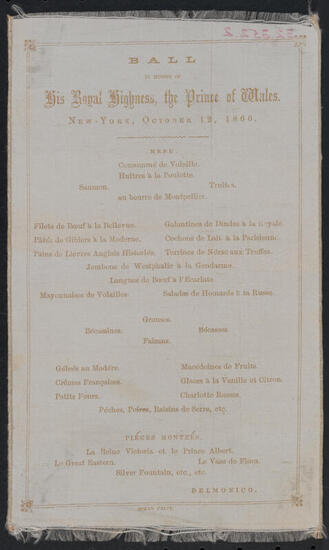 BALL
IN HONOR OF
His Royal Highness, the Prince of Wales.
NEW-YORK, OCTOBER 12, 1860.
MENU.
Consommé de Volaille.
Huîtres à la Poulette.
Saumon. Truites.
au beurre de Montpellier.
Filets de Bœuf à la Bellevue. Galantines de Dindes à la Royale.
Pâtés de Gibiers à la Moderne. Cochons de Lait à la Parisienne.
Pains de Lievres Anglais Historiés. Terrines de Nérac aux Truffes.
Jambons de Westphalie à la Gendarme.
Langues de Bœuf à l'Ecarlate.
Mayonnaises de Volailles. Salades de Homards à la Russe.
Grouses.
Bécassines. Bécasses.
Faisans.
Gelées au Madère. Macédoines de Fruits.
Crêmes Françaises. Glaces à la Vanille et Citron.
Petits Fours. Charlotte Russes.
Pêches, Poires, Raisins de Serre, etc.
PIÉCES MONTÉES.
La Reine Victoria et le Prince Albert.
Le Great Eastern. Le Vase de Flora.
Silver Fountain, etc., etc.
DELMONICO.